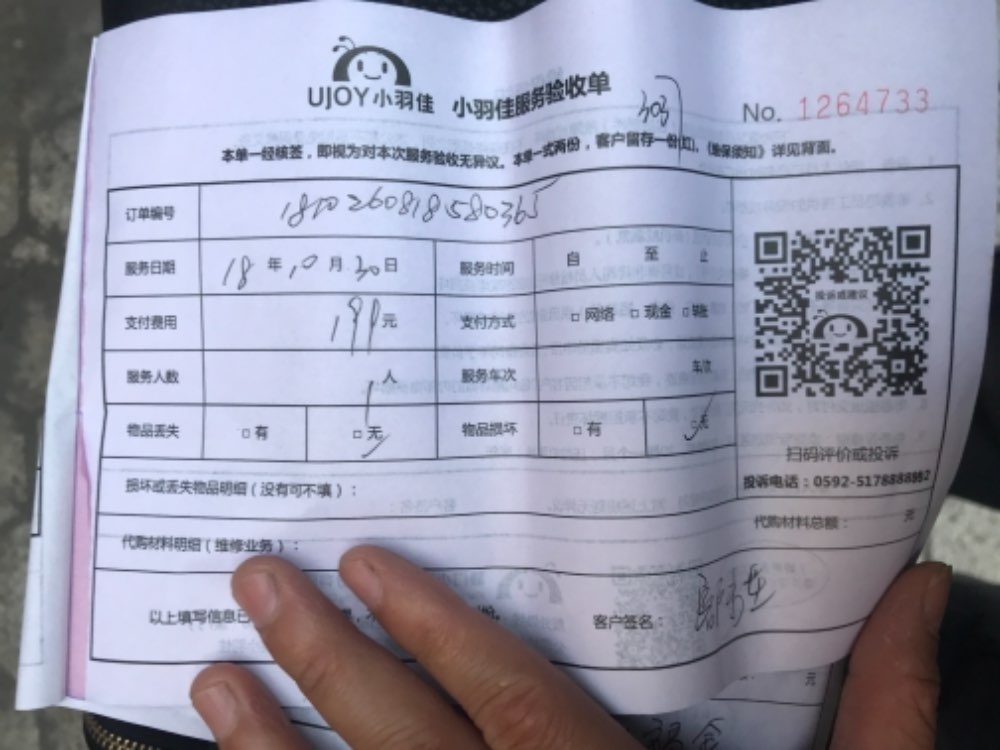 UJOY小羽佳 小羽佳服务验收单
303
No. 1264733
本单一经核签，即视为对本次服务验收无异议。本单一式两份，客户留存一份(红)。《地保须知》详见背面。
订单编号 1810260818580365
服务日期 18 年 10 月 30 日 服务时间 自 至 止
支付费用 199元 支付方式 □ 网络 □ 现金 □ 转账
服务人数 1 人 服务车次 车次
物品丢失 □ 有 □ 无 物品损坏 □ 有 □ 无
投诉或建议
扫码评价或投诉
投诉电话：0592-5178888882
损坏或丢失物品明细（没有可不填）：
代购材料明细（维修业务）： 代购材料总额： 元
以上填写信息已
客户签名：
元